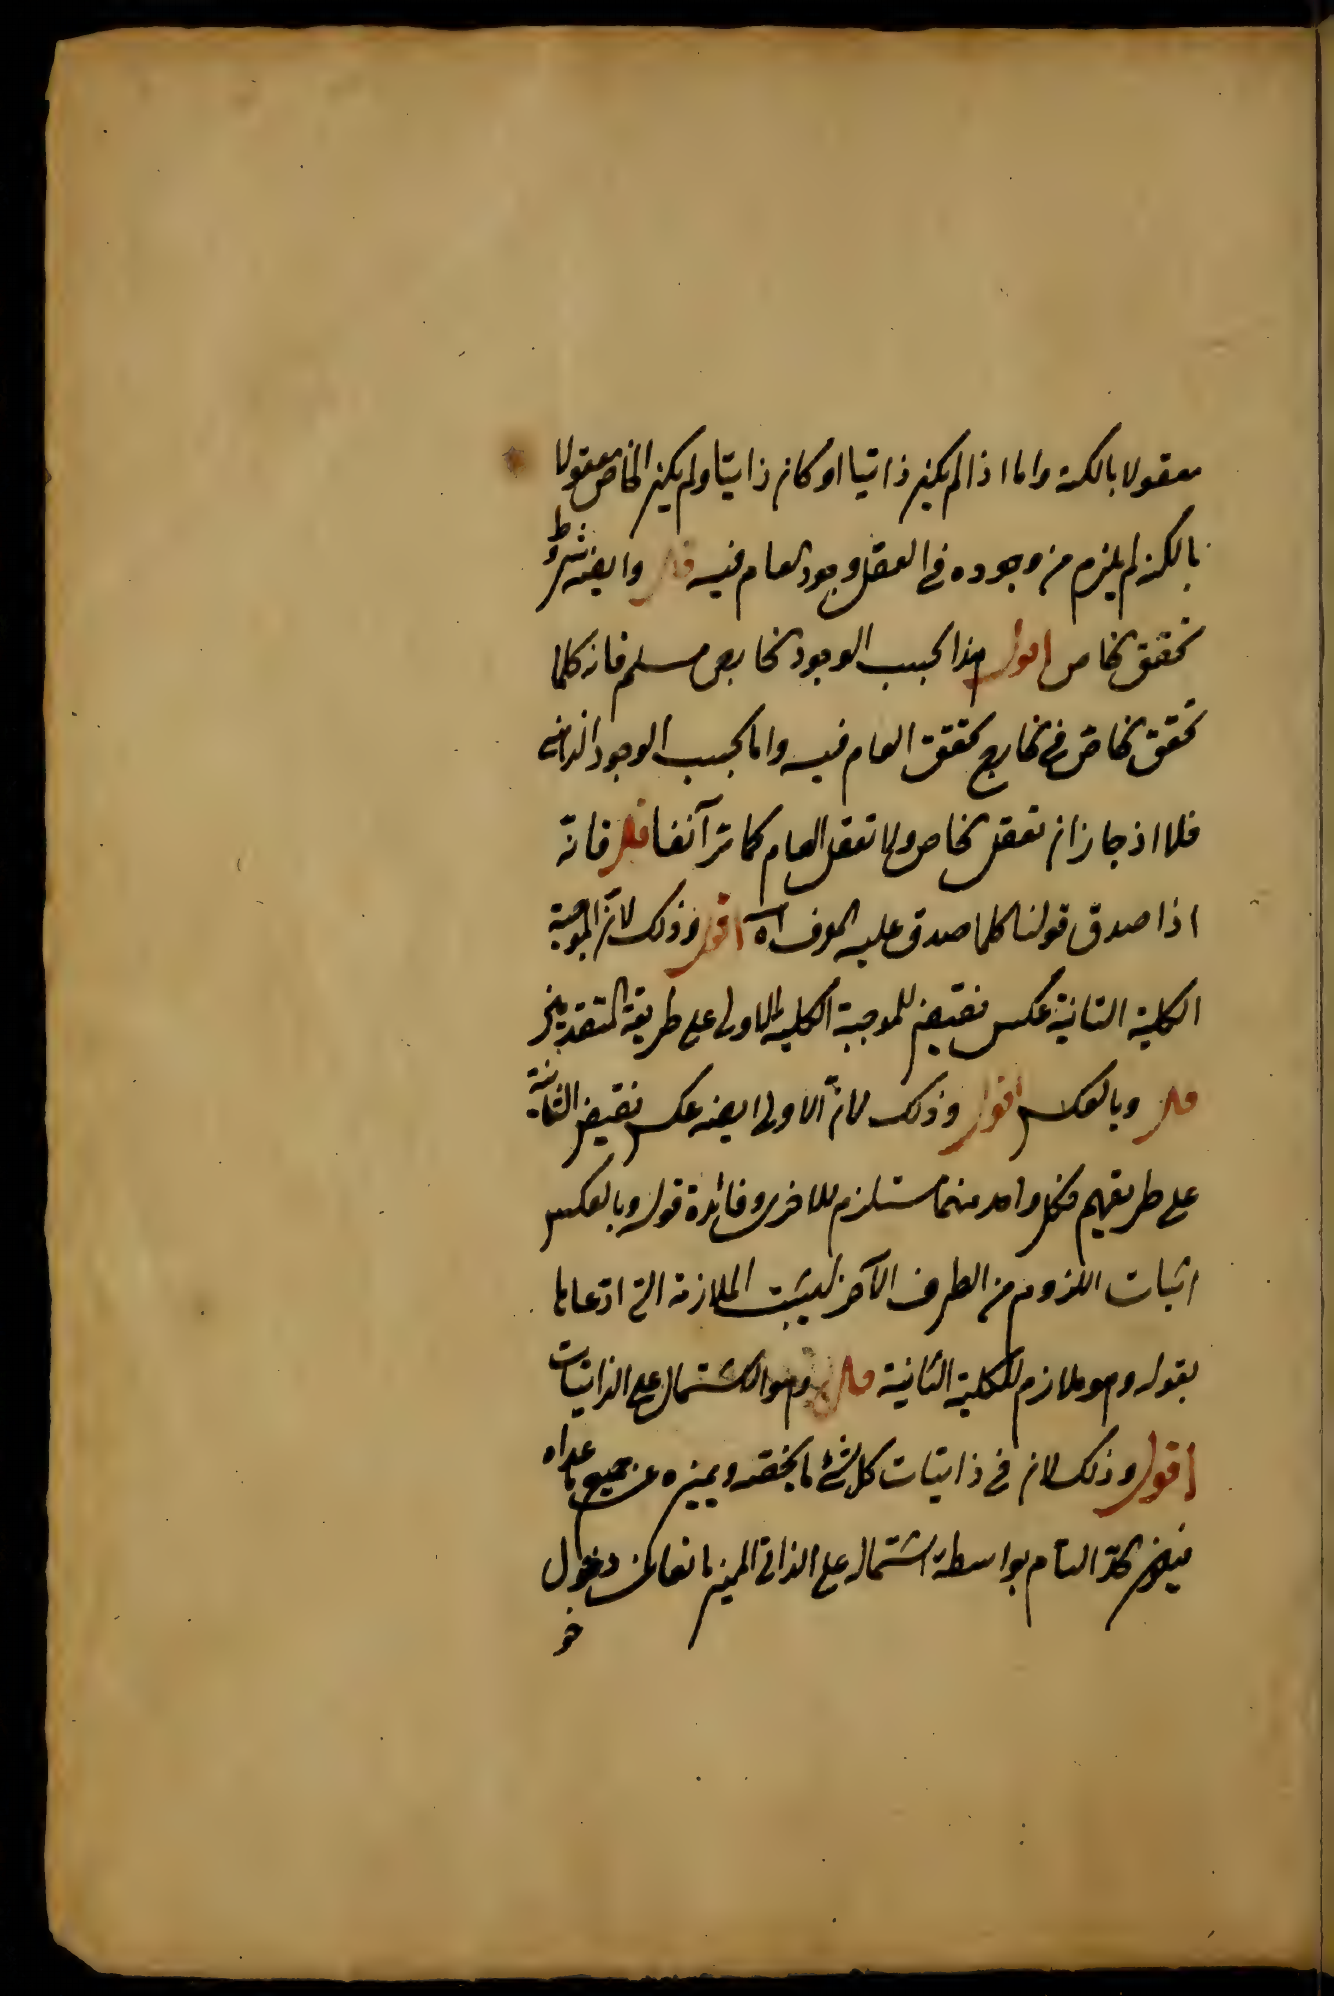 معقولا بالكنه واما اذا لم يكن ذاتيا او كان ذاتيا ولم يكن الخاص معقولا
بالكنه لم يلزم من وجوده في العقل وجود العام فيه قال وايضه شروط
تحقق الخاص اقول هذا بحسب الوجود الخارجي مسلم فانه كلما
تحقق الخاص في الخارج تحقق العام فيه واما بحسب الوجود الذهني
فلا اذ جاز ان تعقل الخاص ولا تعقل العام كما مرّ آنفا قال فانّه
اذا صدق قولنا كلما صدق عليه المعرف اه اقول وذلك لانّ الموجبة
الكلية الثانية عكس نقيض للموجبة الكلية الاولى على طريقة المتقدمين
قال وبالعكس اقول وذلك لانّ الاولى ايضه عكس نقيض الثانية
على طريقهم فكل واحد منهما مستلزم للاخرى وفائدة قوله وبالعكس
اثبات اللزوم من الطرف الآخر ليثبت الملازمة التي ادّعاها
بقوله وهو ملازم للكلية الثانية قال وهو الاشتمال على الذاتيات
اقول وذلك لان في ذاتيات كل شئ ما يخصّه ويميزه عن جميع ما عداه
فيكون الحدّ التام بواسطة اشتماله على الذاتي المميز مانعا عن دخول